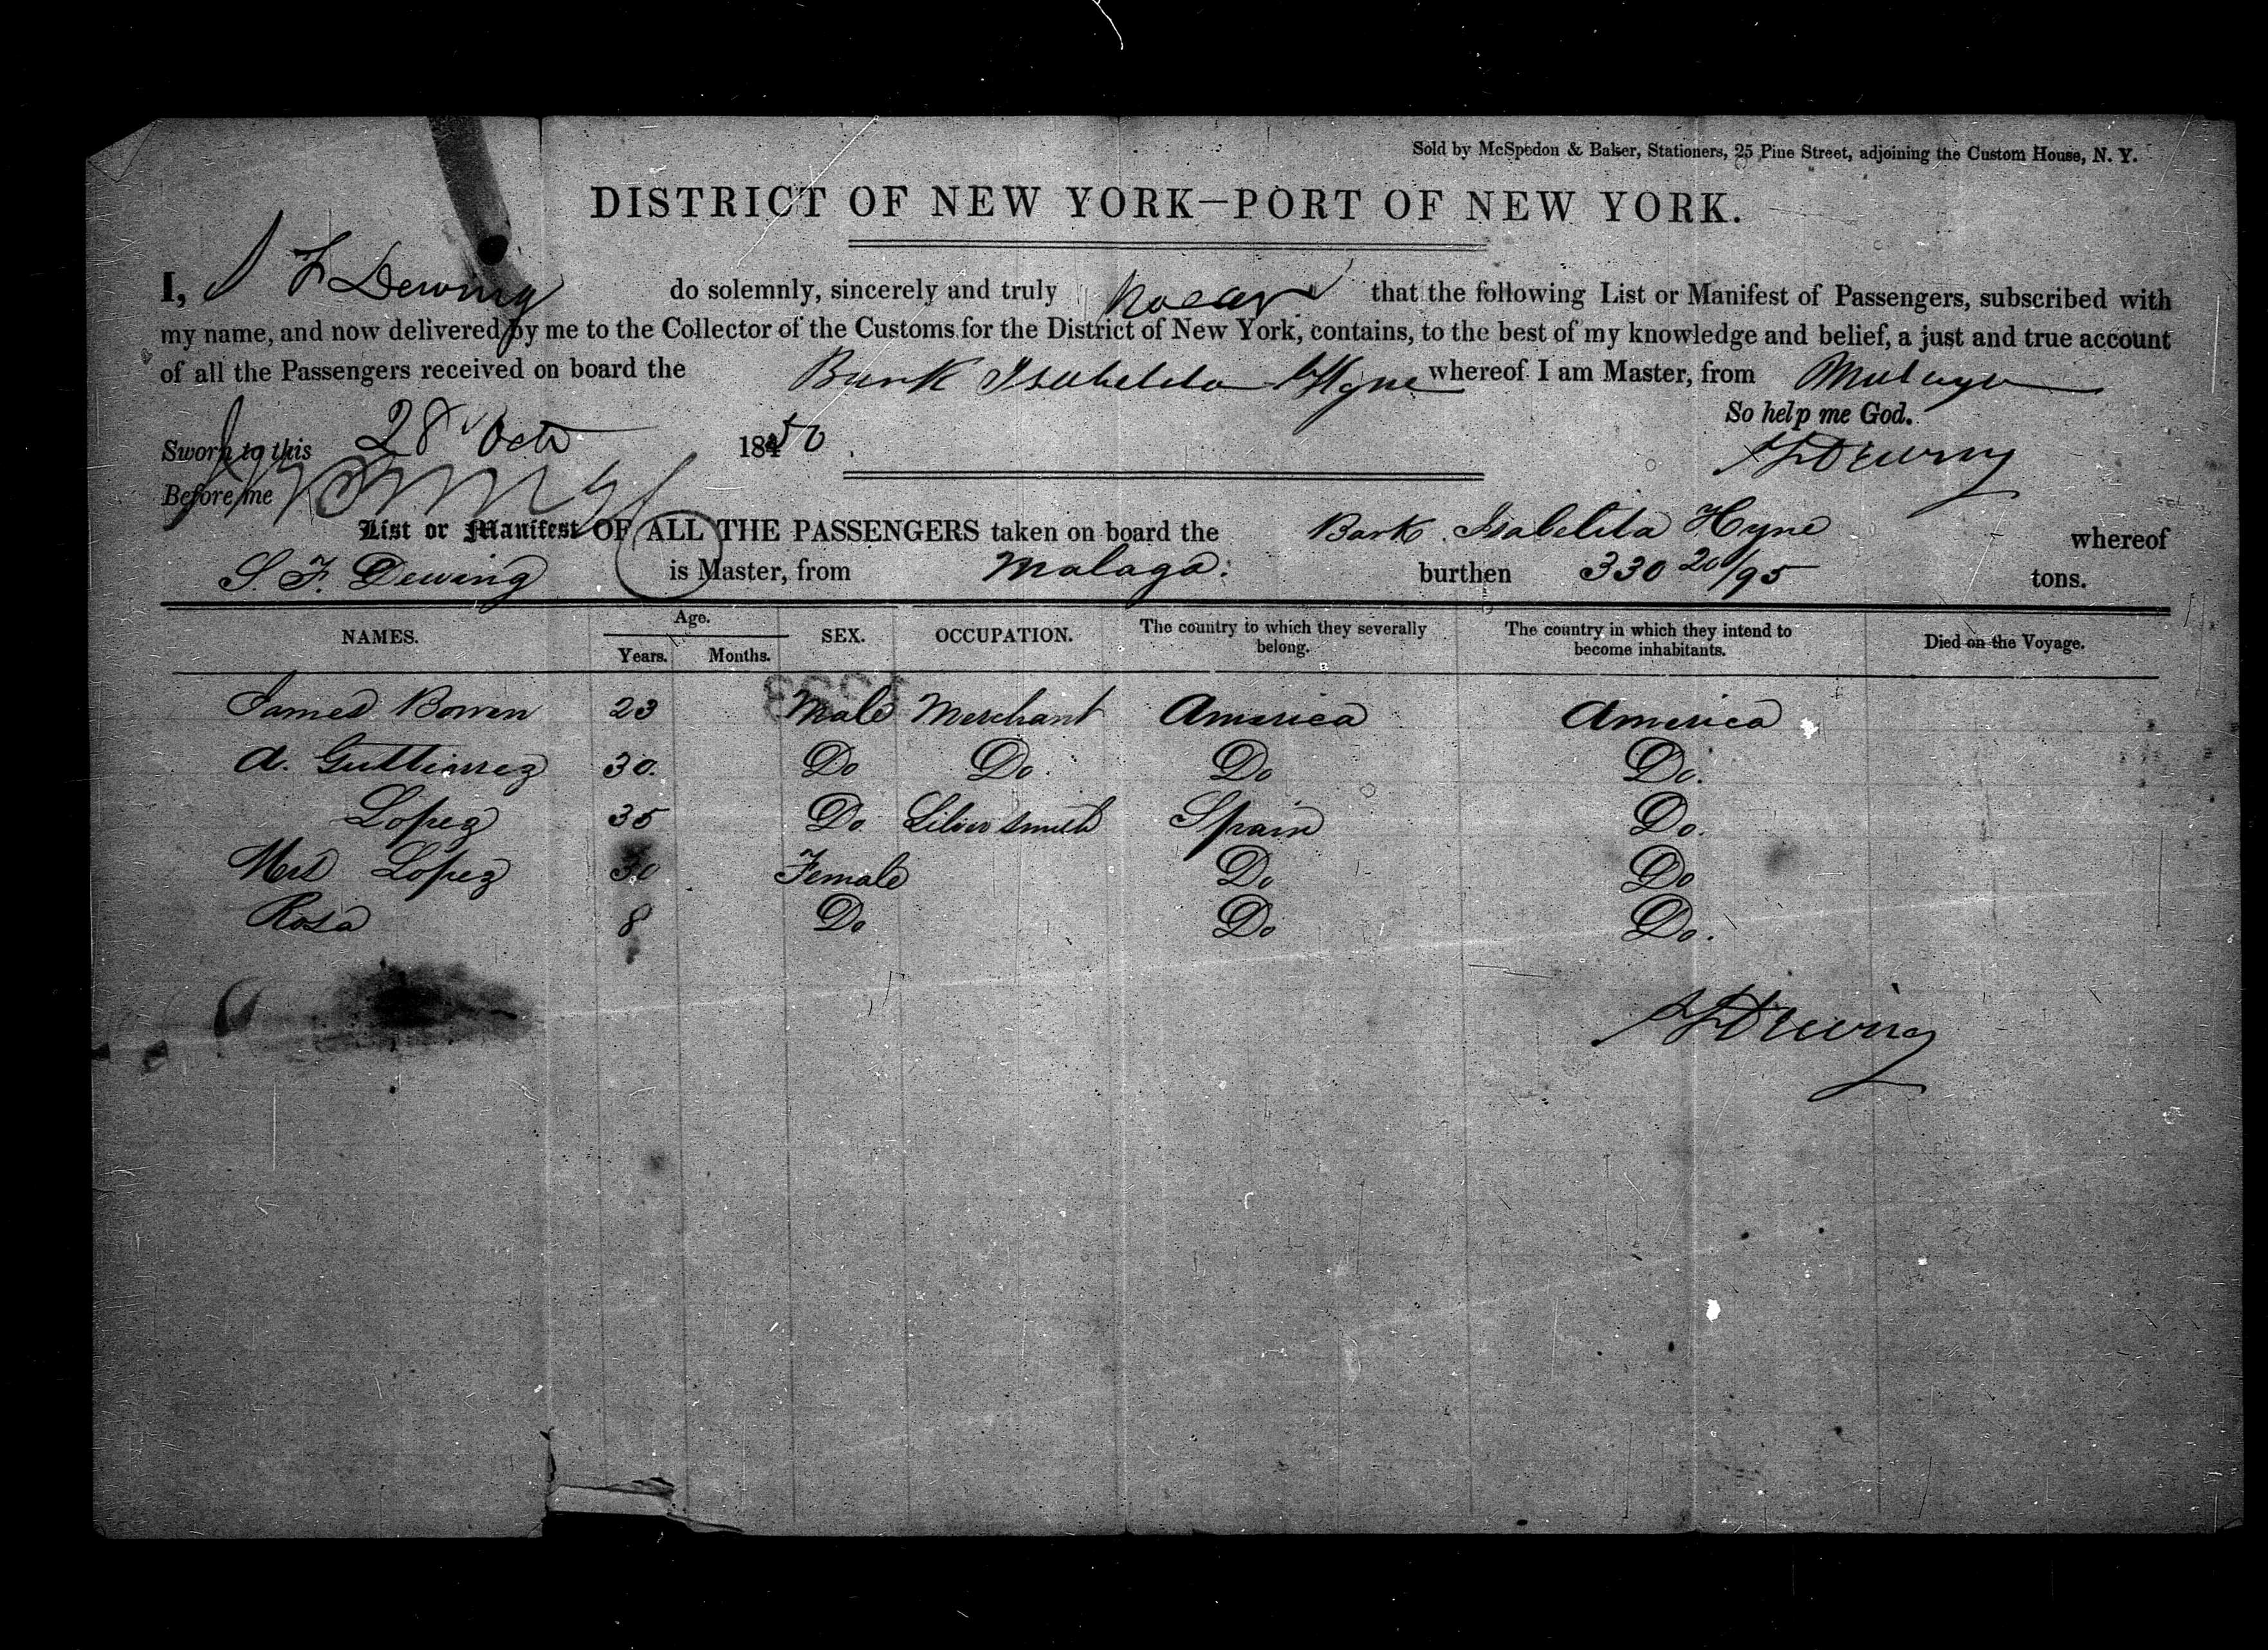 Sold by McSpedon & Baker, Stationers, 25 Pine Street, adjoining the Custom House, N. Y.
DISTRICT OF NEW YORK—PORT OF NEW YORK.
I, S F Dewing do solemnly, sincerely and truly swear that the following List or Manifest of Passengers, subscribed with
my name, and now delivered by me to the Collector of the Customs for the District of New York, contains, to the best of my knowledge and belief, a just and true account
of all the Passengers received on board the Bark Isabelita Hyne whereof I am Master, from Malaga
So help me God.
Sworn to this 28 Octr 1850 S F Dewing
Before me
List or Manifest OF ALL THE PASSENGERS taken on board the Bark Isabelita Hyne whereof
S. F. Dewing is Master, from Malaga. burthen 330 20/95 tons.
NAMES. Age. Years. Months. SEX. OCCUPATION. The country to which they severally belong. The country in which they intend to become inhabitants. Died on the Voyage.
James Bowen 23 Male Merchant America America
A. Guttierrez 30. Do Do. Do Do.
Lopez 35 Do Silversmith Spain Do.
Mrs Lopez 30 Female Do Do
Rosa 8 Do Do Do.
S F Dewing